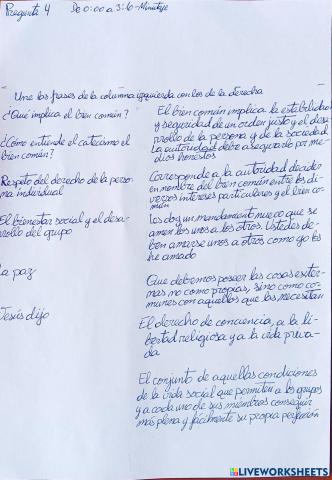 Pregunta 4 De 0:00 a 3:16 - Minutaje
Une las frases de la columna izquierda con los de la derecha
¿Qué implica el bien común?
¿Cómo entiende el catecismo el
bien común?
Respeto del derecho de la perso-
na individual
El bienestar social y el desa-
rrollo del grupo
La paz
Jesús dijo
El bien común implica la estabilidad
y seguridad de un orden justo y el desa
rrollo de la persona y de la sociedad
La autoridad debe asegurarlo por me-
dios honestos
Corresponde a la autoridad decidir
en nombre del bien común entre los di-
versos intereses particulares y el bien co-
mún
Os doy un mandamiento nuevo que se
amen los unos a los otros. Ustedes de-
ben amarse unos a otros como yo os
he amado
Que debemos poseer las cosas exter-
nas no como propias, sino como co-
munes con aquellos que los necesitan
El derecho de conciencia, a la li-
bertad religiosa y a la vida priva-
da
El conjunto de aquellas condiciones
de la vida social que permiten a los grupos
y a cada uno de sus miembros conseguir
más plena y fácilmente su propia perfección
LIVEWORKSHEETS